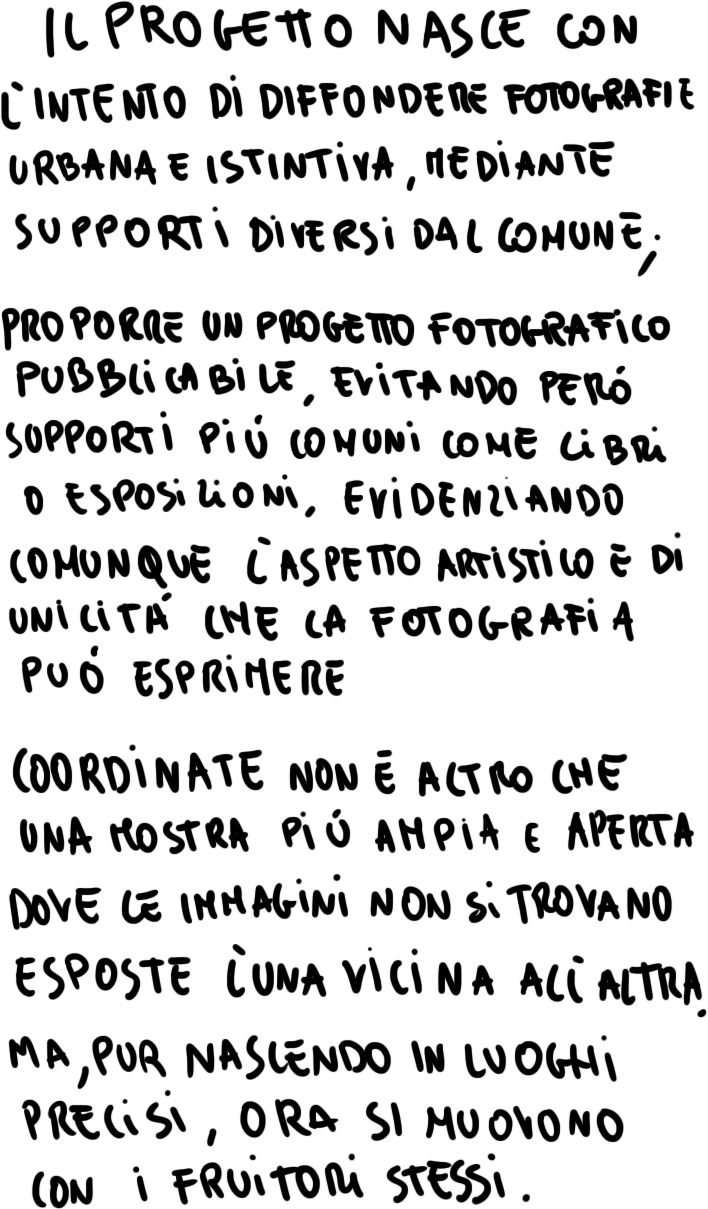 IL PROGETTO NASCE CON
L'INTENTO DI DIFFONDERE FOTOGRAFIE
URBANA E ISTINTIVA, MEDIANTE
SUPPORTI DIVERSI DAL COMUNE;
PROPORRE UN PROGETTO FOTOGRAFICO
PUBBLICABILE, EVITANDO PERÓ
SUPPORTI PIÚ COMUNI COME LIBRI
O ESPOSIZIONI, EVIDENZIANDO
COMUNQUE L'ASPETTO ARTISTICO E DI
UNICITÁ CHE LA FOTOGRAFIA
PUÓ ESPRIMERE
COORDINATE NON É ALTRO CHE
UNA MOSTRA PIÚ AMPIA E APERTA
DOVE LE IMMAGINI NON SI TROVANO
ESPOSTE L'UNA VICINA ALL'ALTRA.
MA, PUR NASCENDO IN LUOGHI
PRECISI, ORA SI MUOVONO
CON I FRUITORI STESSI.